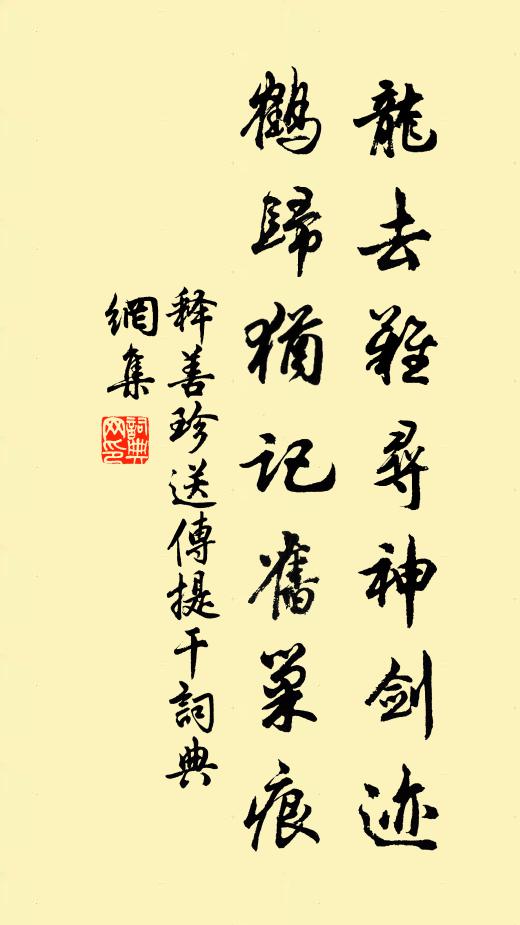 龍去難尋神剑迹
鶴歸猶記舊巢痕
释善珍送傅提干詞典
網集
詞典
网印